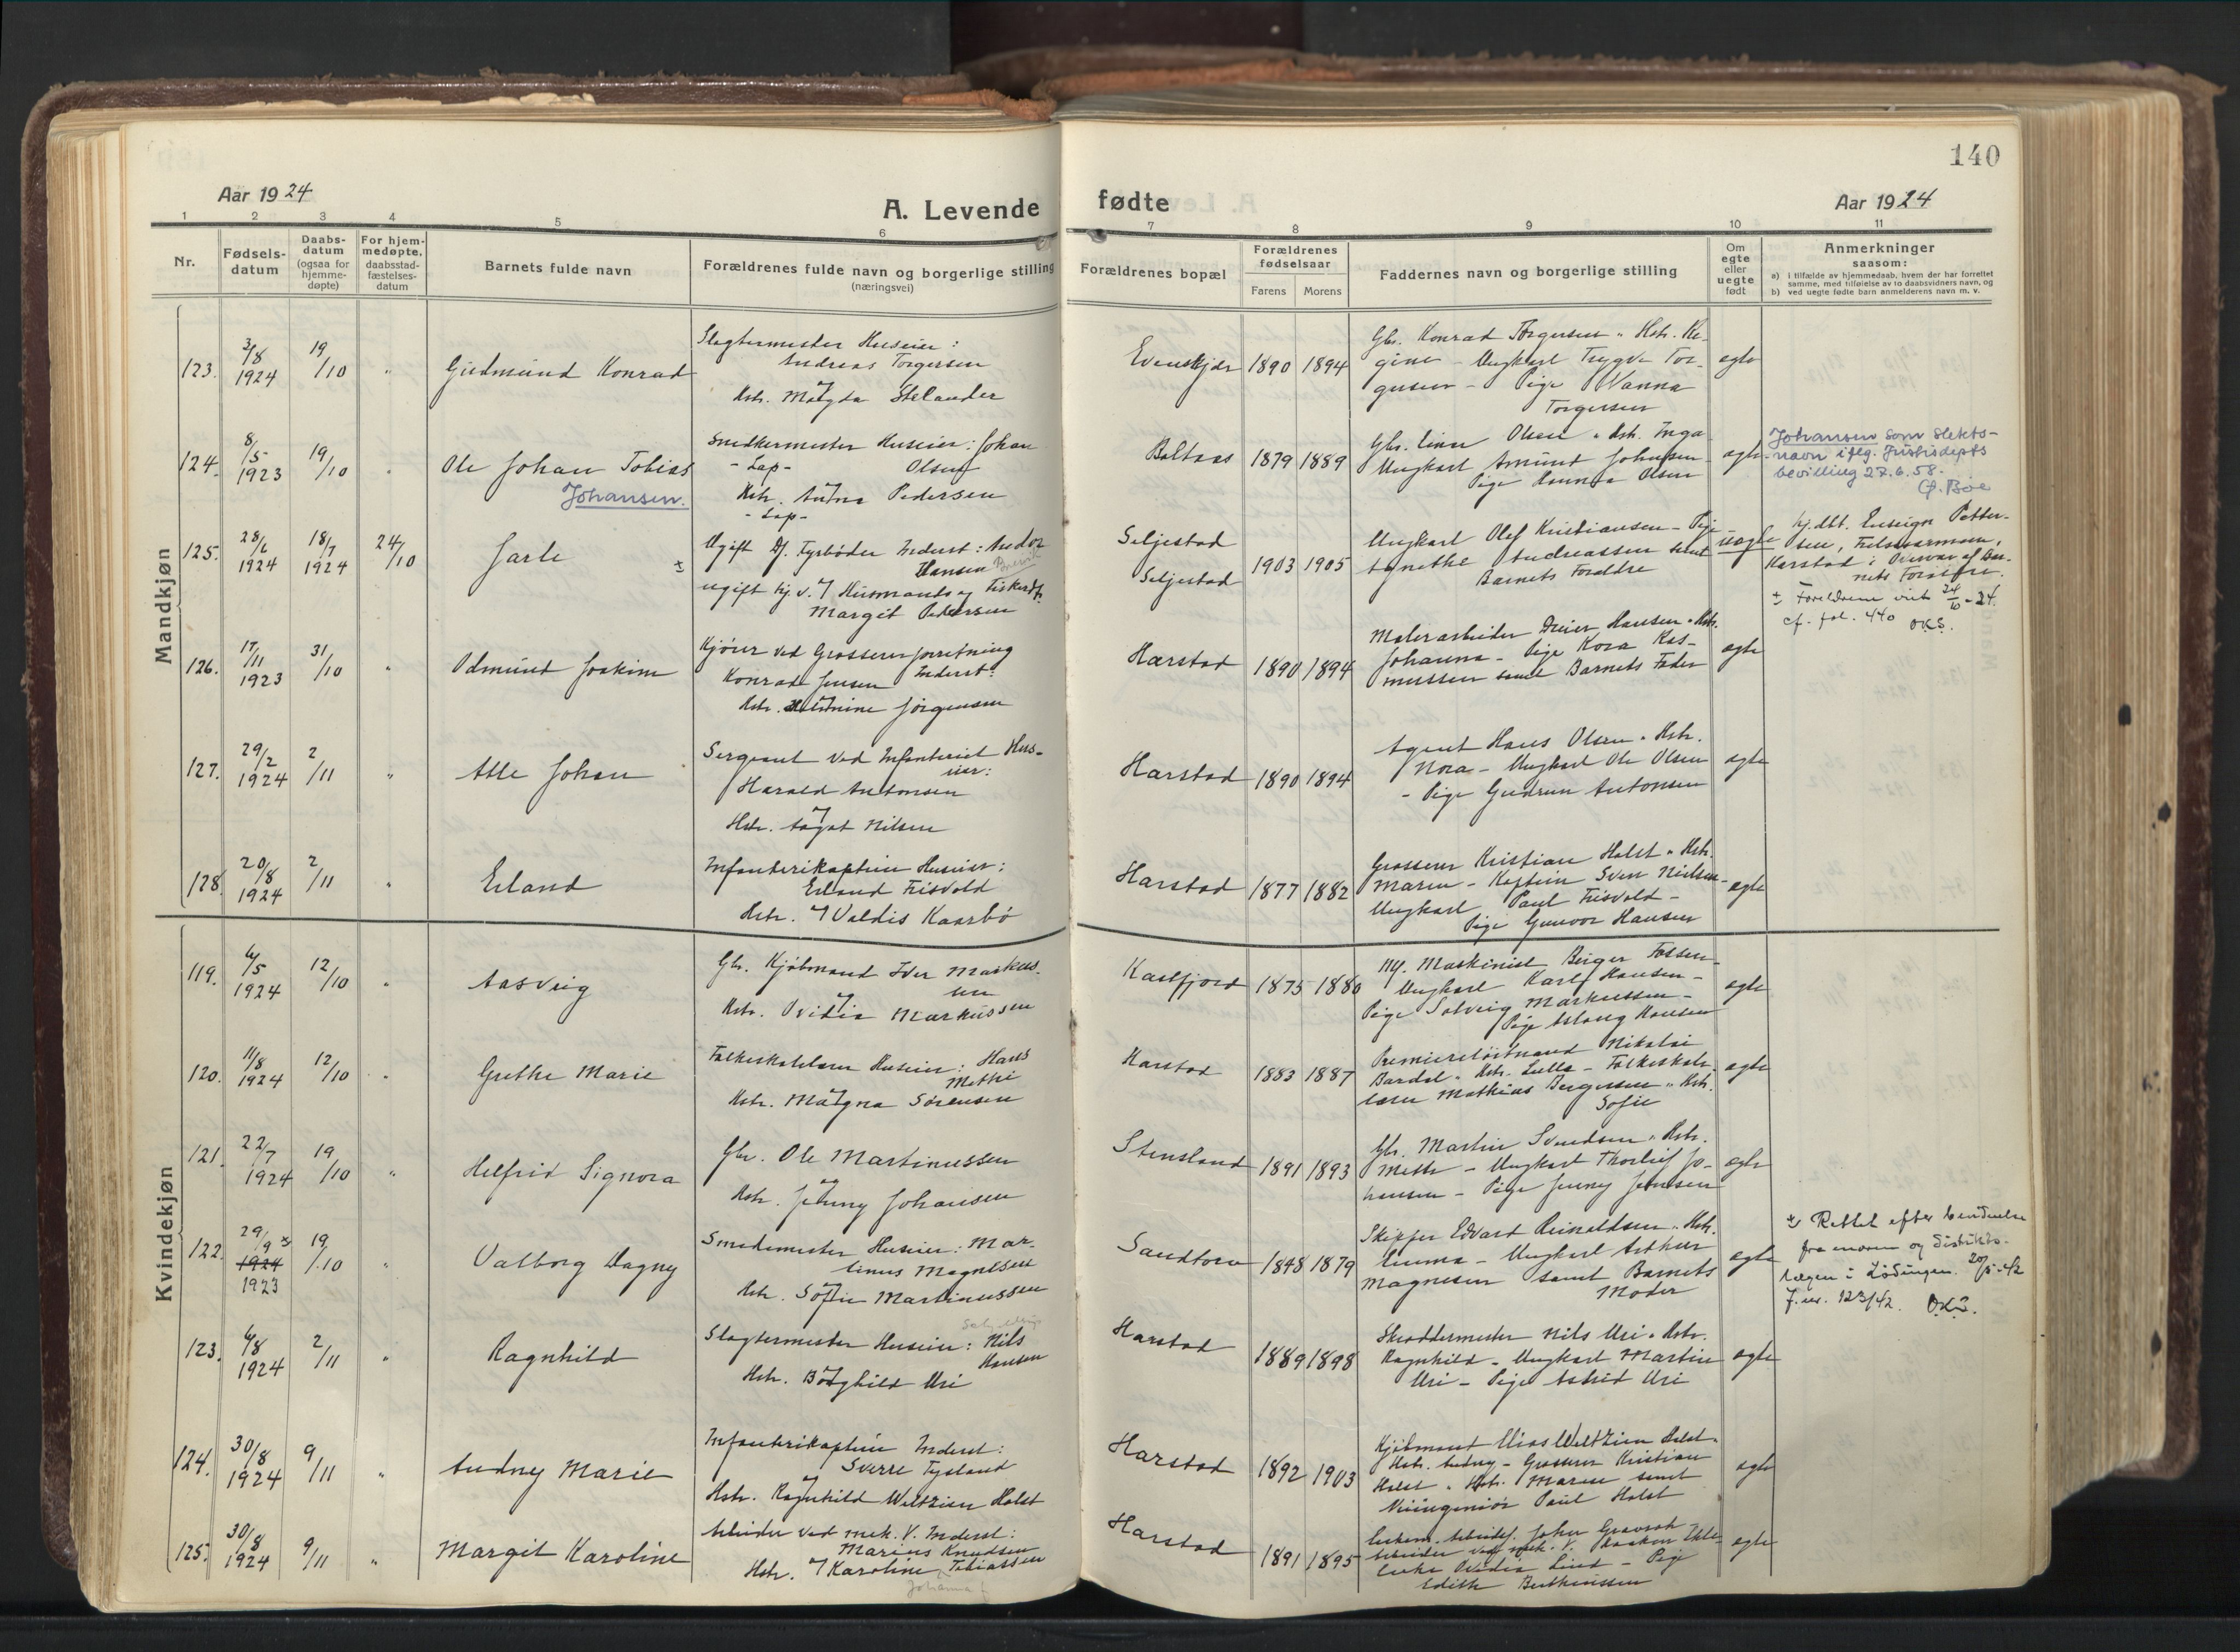 140
Aar 1924
A. Levende
fødte
Aar 1924
1 2 3 4 5 6 7 8 9 10 11
Nr.
Fødsels-
datum
Daabs-
datum
(ogsaa for
hjemme-
døpte)
For hjem-
medøpte,
daabsstad-
fæstelses-
datum
Barnets fulde navn
Forældrenes fulde navn og borgerlige stilling
(næringsvei)
Forældrenes bopæl
Forældrenes
fødselsaar
Farens Morens
Faddernes navn og borgerlige stilling
Om
egte
eller
uegte
født
Anmerkninger
saasom:
a) i tilfælde av hjemmedaab, hvem der har forrettet
samme, med tilføielse av to daabsvidners navn, og
b) ved uegte fødte barn anmelderens navn m. v.
Mandkjøn
123. 3/8 1924 19/10 " Gudmund Konrad
Slagtermester Huseier:
Andreas Torgersen
og
Hstr. Magda Stelander
Evenskjer 1890 1894
Gbr. Konrad Torgersen " Hstr. Re-
gine - Ungkarl Trygve Tor-
gersen - Pige Nanna
Torgersen
egte
124. 8/5 1923 19/10 " Ole Johan Tobias
Johansen.
Snedkermester Huseier: Johan
- Lap - Olsen
og
Hstr. Anna Pedersen
- Lap -
Boltaas 1879 1889
Gbr. Olsen " Hstr. Inga
Ungkarl Amund Johansen
Pige Olsen
egte
Johansen som slekts-
navn iflg. Justisdepts
bevilling 27.6.58.
G. Bøe
125. 28/6 1924 18/7 1924 24/10 Jarle
±
Ugift Df. Fyrbøder Inderst: Andor
Hansen
ugift hj.v. og Husmands og Fiskerdt.
Margit Pedersen
Seljestad
Seljestad
1903 1905
Ungkarl Olef Kristiansen - Pige
Agnethe Andreassen samt
Barnets Forældre
uegte
hj.dbt. Ensign Petter-
sen, Frelsesarmeen,
Harstad i Overvær af Bar-
nets Forældre.
± Foreldrene viet 24/10-24.
cf. fol. 440 OKS.
126. 17/11 1923 31/10 " Odmund Joakim
Kjører ved Grossererforretning
Konrad Jensen Inderst:
og
Hstr. Jørgensen
Harstad 1890 1894
Malerarbeider Hansen " Hstr.
Johanna - Pige Kora Ras-
mussen samt Barnets Fader
egte
127. 29/2 1924 2/11 " Atle Johan
Sergeant ved Infanteriet Hus-
eier:
Harald Antonsen
og
Hstr. Aagot Nilsen
Harstad 1890 1894
Agent Hans Olsen " Hstr.
Nora - Ungkarl Ole Olsen
- Pige Gudrun Antonsen
egte
128. 20/8 1924 2/11 " Erland
Infanterikaptein Huseier:
Erland Frisvold
Hstr. og Valdis Kaarbø
Harstad 1877 1882
Grosserer Kristian Holst " Hstr.
Maren - Kaptein Sven Nielsen -
Ungkarl Paul Frisvold -
Pige Gunvor Hansen
egte
Kvindekjøn
119. 4/5 1924 12/10 " Aasveig
Gbr. Kjøbmand Iver Markus-
sen
og
Hstr. Ovidia Markussen
Kasfjord 1875 1880
Maskinist Berger Fossen -
Ungkarl Karl Hansen -
Pige Solveig Markussen -
Pige Aslaug Hansen
egte
120. 11/8 1924 12/10 " Grethe Marie
Folkeskolelærer Huseier: Hans
Methi
og
Hstr. Magna Sørensen
Harstad 1883 1887
Premierløitnand Nikolai
Bardal " Hstr. Lulla - Folkeskole-
lærer Mathias Bergersen " Hstr.
Sofie
egte
121. 22/7 1924 19/10 " Helfrid Signora
Gbr. Ole Martinussen
og
Hstr. Jenny Johansen
Stensland 1891 1893
Gbr. Martin Svendsen " Hstr.
Mette - Ungkarl Thorleif Jo-
hansen - Pige Jenny Jensen
egte
122. 29/9 ± 1924 1923 19/10 " Valborg Dagny
Smedemester Huseier: Mar-
tinus Magnesen
og
Hstr. Sofie Martinussen
Sandtorv 1848 1879
Skipper Edvard Reinoldsen " Hstr.
Emma - Ungkarl Arthur
Magnesen samt Barnets
Moder
egte
± Rettet efter bevidnelse
fra moren og distrikts-
lægen i Lødingen. 20/5-42
J.nr. 123/42. OKS.
123. 4/8 1924 2/11 " Ragnhild
Slagtermester Huseier: Nils
Hansen
og
Hstr. Borghild Uri
Harstad 1889 1898
Skræddermester Nils Uri " Hstr.
Ragnhild - Ungkarl Martin
Uri - Pige Astrid Uri
egte
124. 30/8 1924 9/11 " Audny Marie
Infanterikaptein Inderst:
Sverre Tysland
og
Hstr. Ragnhild Weltzien Holst
Harstad 1892 1903
Kjøbmand Elias Weltzien Holst "
Hstr. Audny - Grosserer Kristian
Holst " Hstr. Maren samt
Paul Holst
egte
125. 30/8 1924 9/11 " Margit Karoline
Arbeider ved mek. V. Inderst:
Marius Knudsen
Hstr. og Karoline Tobiassen
Johanna
Harstad 1891 1895
John
Arbeider ved mek. V. Haakon
Ovidia Lind - Pige
Edith Berthinussen
egte